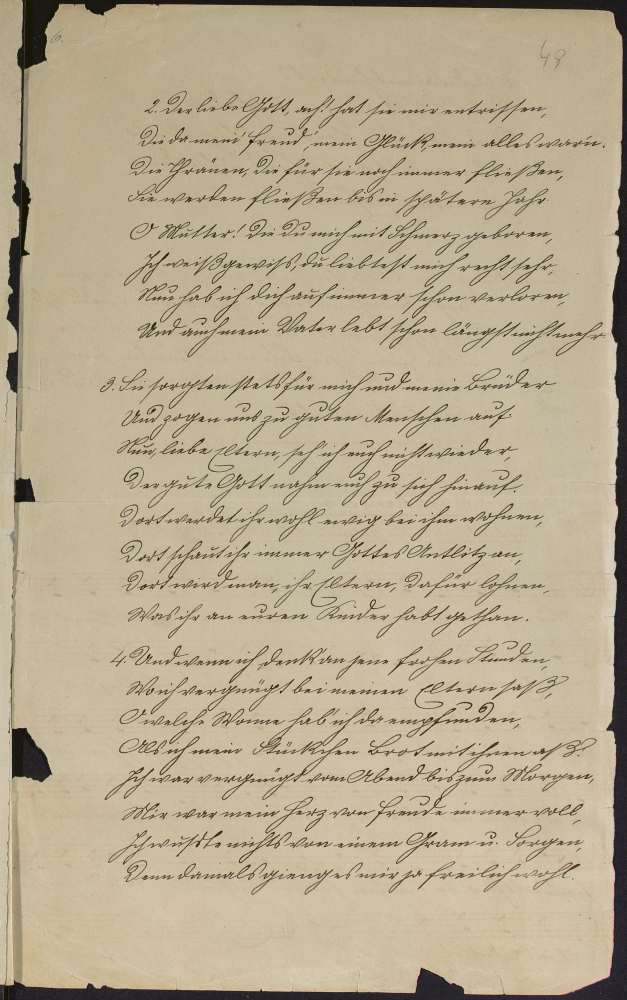 6.
48
2. Der liebe Gott, ach! hat sie mir entrissen,
Die da mein' Freud', mein Glück, mein alles war'n.
Die Thränen, die für sie noch immer fließen,
Sie werden fließen bis in spätern Jahr
O Mutter! Die Du mich mit Schmerz geboren,
Ich weiß gewiß, du liebtest mich recht sehr,
Nun hab ich dich auf immer schon verloren,
Und auch mein Vater lebt schon längst nicht mehr.
3. Sie sorgten stets für mich und meine Brüder
Und zogen uns zu guten Menschen auf
Nun, liebe Eltern, seh ich euch nicht wieder,
Der gute Gott nahm euch zu sich hinauf.
Dort werdet ihr wohl ewig bei ihm wohnen,
Dort schaut ihr immer Gottes Antlitz an,
Dort wird man, ihr Eltern, dafür lohnen,
Was ihr an euren Kinder habt gethan.
4. Und wenn ich denk' an jene frohen Stunden,
Wo ich vergnügt bei meinen Eltern saß,
O welche Wonne hab ich da empfunden,
Als ich mein Stückchen Brot mit ihnen aß.
Ich war vergnügt vom Abend bis zum Morgen,
Mir war mein Herz von Freude immer voll,
Ich wußte nichts von einem Gram u. Sorgen,
Denn damals gieng es mir ja freilich wohl.